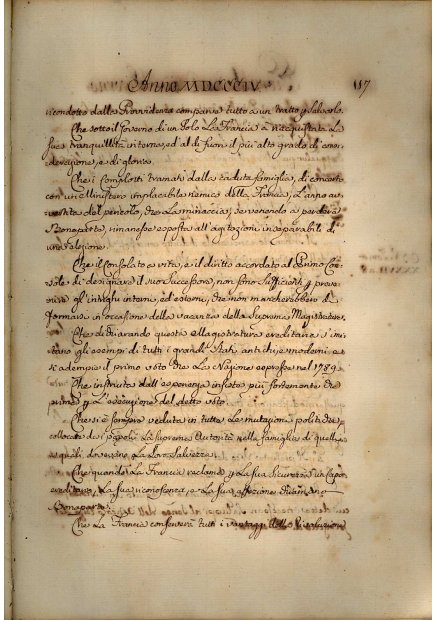 Anno MDCCCIV
117
ricondotto dalla Provvidenza comparve tutto a un tratto p salvarlo.
Che sotto il Governo di un solo La Francia à riacquistata La
sua tranquillità interna, ed al di fuori il più alto grado di consi-
derazione, e di gloria.
Che i complotti tramati dalla caduta famiglia, di concerto
con un Ministero implacabile nemico della Francia, L'anno av-
vertita del pericolo, che La minaccia, se venendo a perdere
Bonaparte, rimanesse esposta all'agitazioni inseparabili di
una elezione.
Che il Consolato a vita, e il diritto accordato al Primo Con-
sole di designare il suo Successore, non sono sufficienti p preve-
nire gl'intrighi interni, ed esterni, che non mancherebbero di
formarsi in occasione della vacanza della Suprema Magistratura.
Che dichiarando questa Magistratura ereditaria s'imi-
tano gli esempi di tutti i grandi Stati antichi, e moderni, e
s'adempie il primo voto che La Nazione espresse nel 1789.
Che instruita dall'esperienza insiste più fortemente che
mai p L'esecuzione del detto voto.
Che si è sempre veduta in tutte Le mutazioni politiche,
collocata dai popoli La Suprema Autorità nella famiglia di quelli, a
i quali dovevano La Loro Salvezza.
Che quando La Francia reclama p La sua Sicurezza un Capo
ereditario, La sua riconoscenza, e La sua affezione chiamano
Bonaparte.
Che La Francia conserverà tutti i vantaggi della Rivoluzione